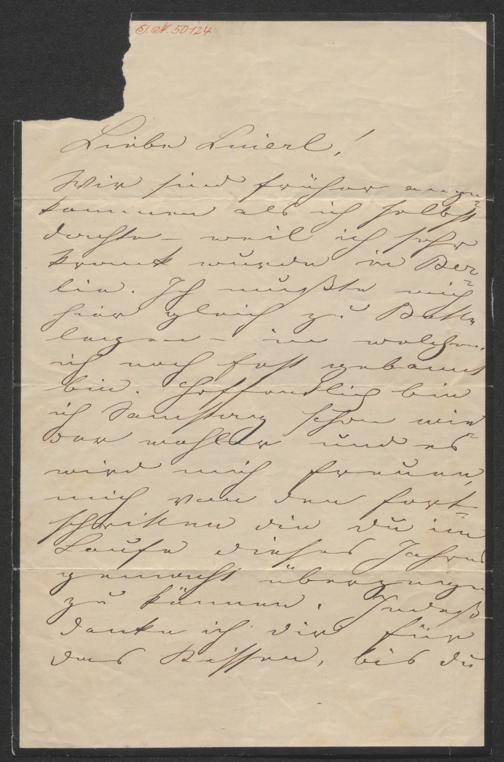 I. N. 50124
Liebe Luierl!
Wir sind früher ange=
kommen als ich selbst
dachte – weil ich sehr
krank wurde in Ber=
lin. Ich mußte mich
hier gleich zu Bette
legen – in welchem
ich noch fast gebannt
bin. Hoffentlich bin
ich Samstag schon wie=
der wohler und es
wird mich freuen,
mich von den Fort=
schritten die du im
Laufe dieses Jahres
gemacht überzeugen
zu können. Indeß
danke ich dir für
das Kissen, bis du